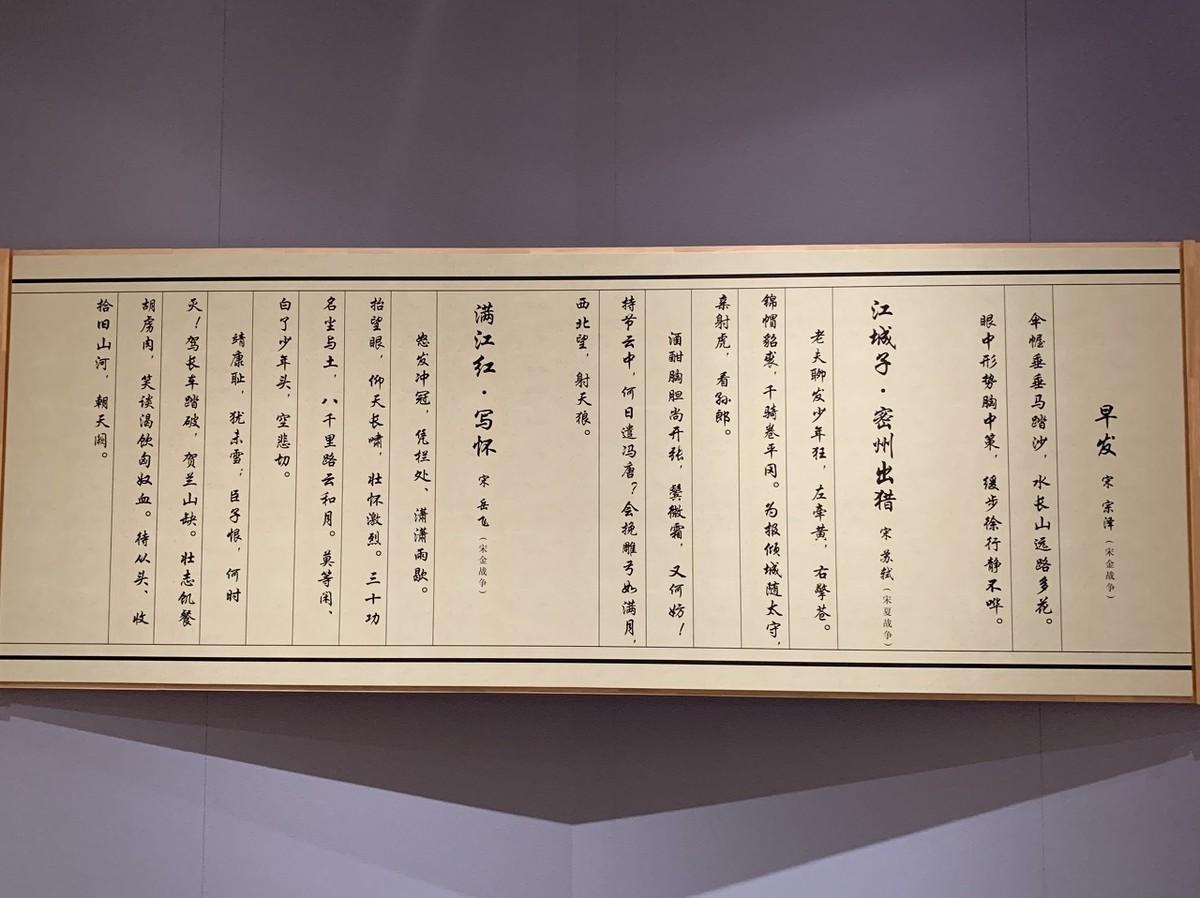 早发 宋 宗泽（宋金战争）
伞幄垂垂马踏沙，水长山远路多花。
眼中形势胸中策，缓步徐行静不哗。
江城子·密州出猎 宋 苏轼（宋夏战争）
老夫聊发少年狂，左牵黄，右擎苍。
锦帽貂裘，千骑卷平冈。为报倾城随太守，
亲射虎，看孙郎。
酒酣胸胆尚开张，鬓微霜，又何妨！
持节云中，何日遣冯唐？会挽雕弓如满月，
西北望，射天狼。
满江红·写怀 宋 岳飞（宋金战争）
怒发冲冠，凭栏处、潇潇雨歇。
抬望眼，仰天长啸，壮怀激烈。三十功
名尘与土，八千里路云和月。莫等闲、
白了少年头，空悲切。
靖康耻，犹未雪；臣子恨，何时
灭！驾长车踏破，贺兰山缺。壮志饥餐
胡虏肉，笑谈渴饮匈奴血。待从头、收
拾旧山河，朝天阙。